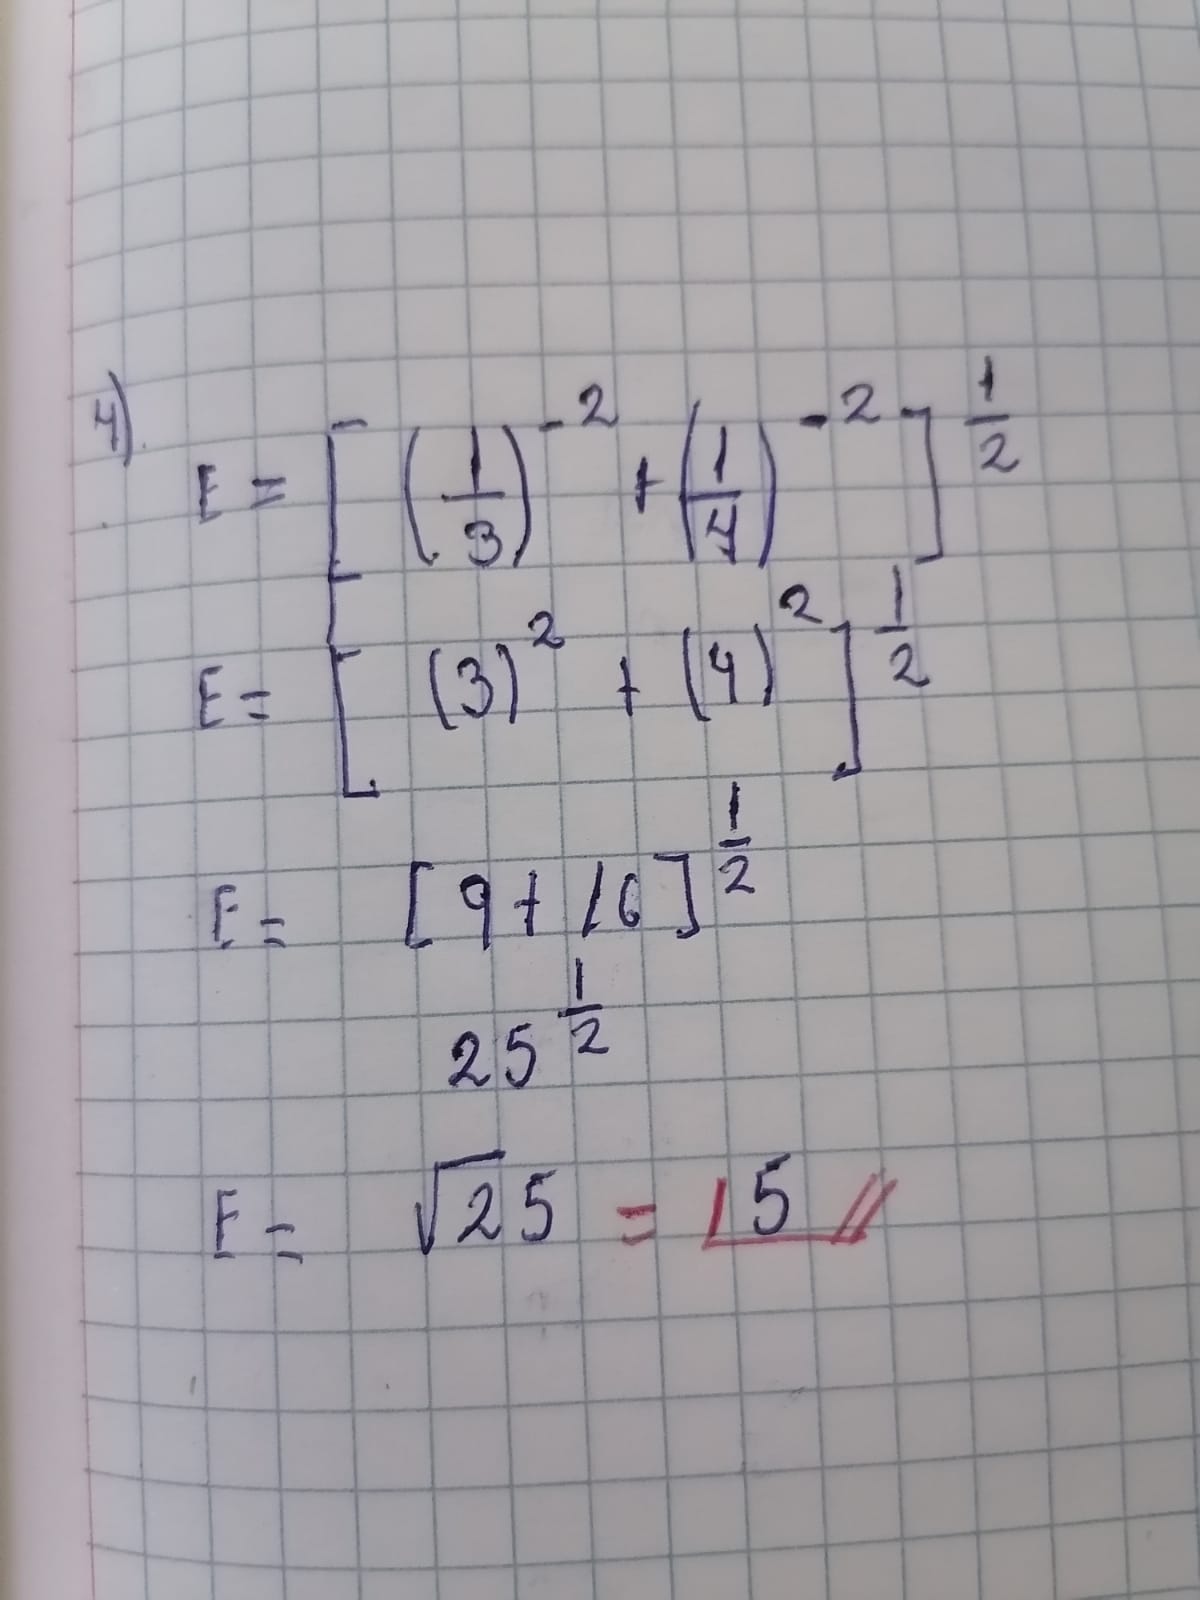 4).
E = [(1/3)^-2 + (1/4)^-2]^1/2
E = [(3)^2 + (4)^2]^1/2
E = [9 + 16]^1/2
25^1/2
E = √25 = 5 //